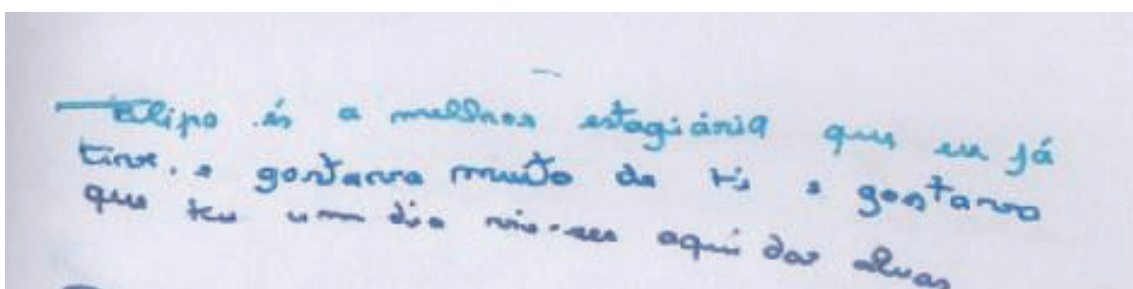 Filipa és a melhor estagiária que eu já
tive. e gostarva muito de tis e gostarva
que teu um dia vis-ses aqui dar aluas